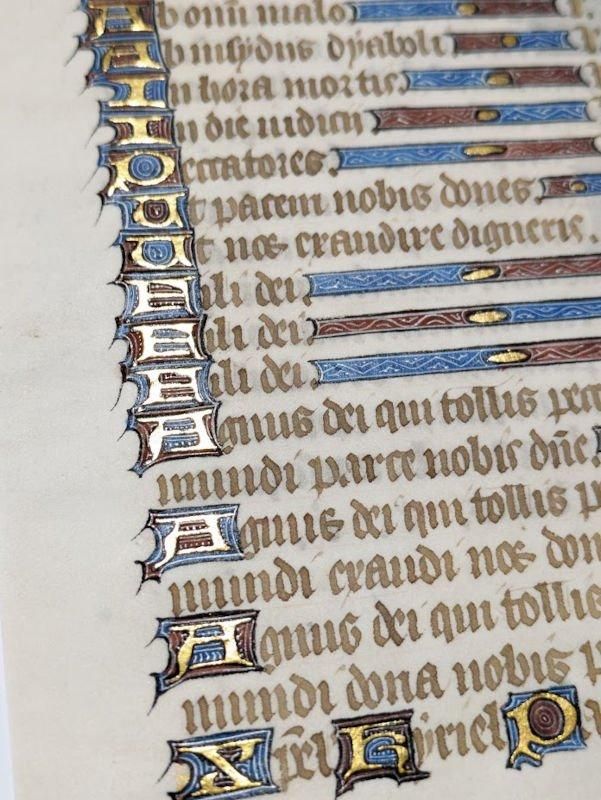 Ab om̄i malo.
Ab insydiis dyaboli
In hora mortis.
In die iudicij
Peccatores.
Ut pacem nobis dones.
Ut nos exaudire digneris.
Fili dei.
Fili dei.
Fili dei.
Agnus dei qui tollis pecc
mundi parce nobis dn̄e.
Agnus dei qui tollis p
mundi exaudi nos dom
Agnus dei qui tollis
mundi dona nobis p
Xp̄el Kyriel Pa